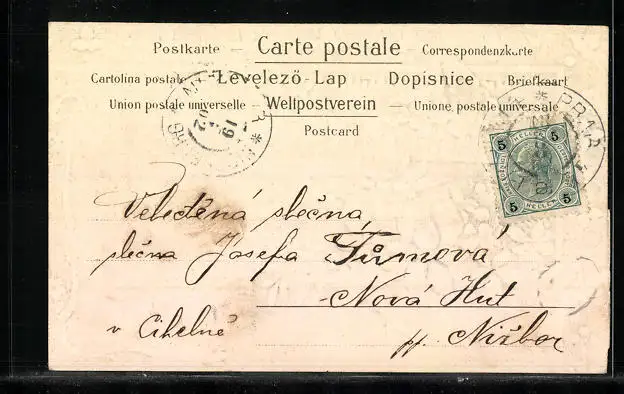 Postkarte – Carte postale – Correspondenzkarte
Cartolina postale – Levelező-Lap Dopisnice – Briefkaart
Union postale universelle – Weltpostverein – Unione postale universale
Postcard
5 5
HELLER
5 5
PRAG
Velectěná slečna,
slečna Josefa Tůmova,
Nová Huť
v Cihelně pp. Nižbor